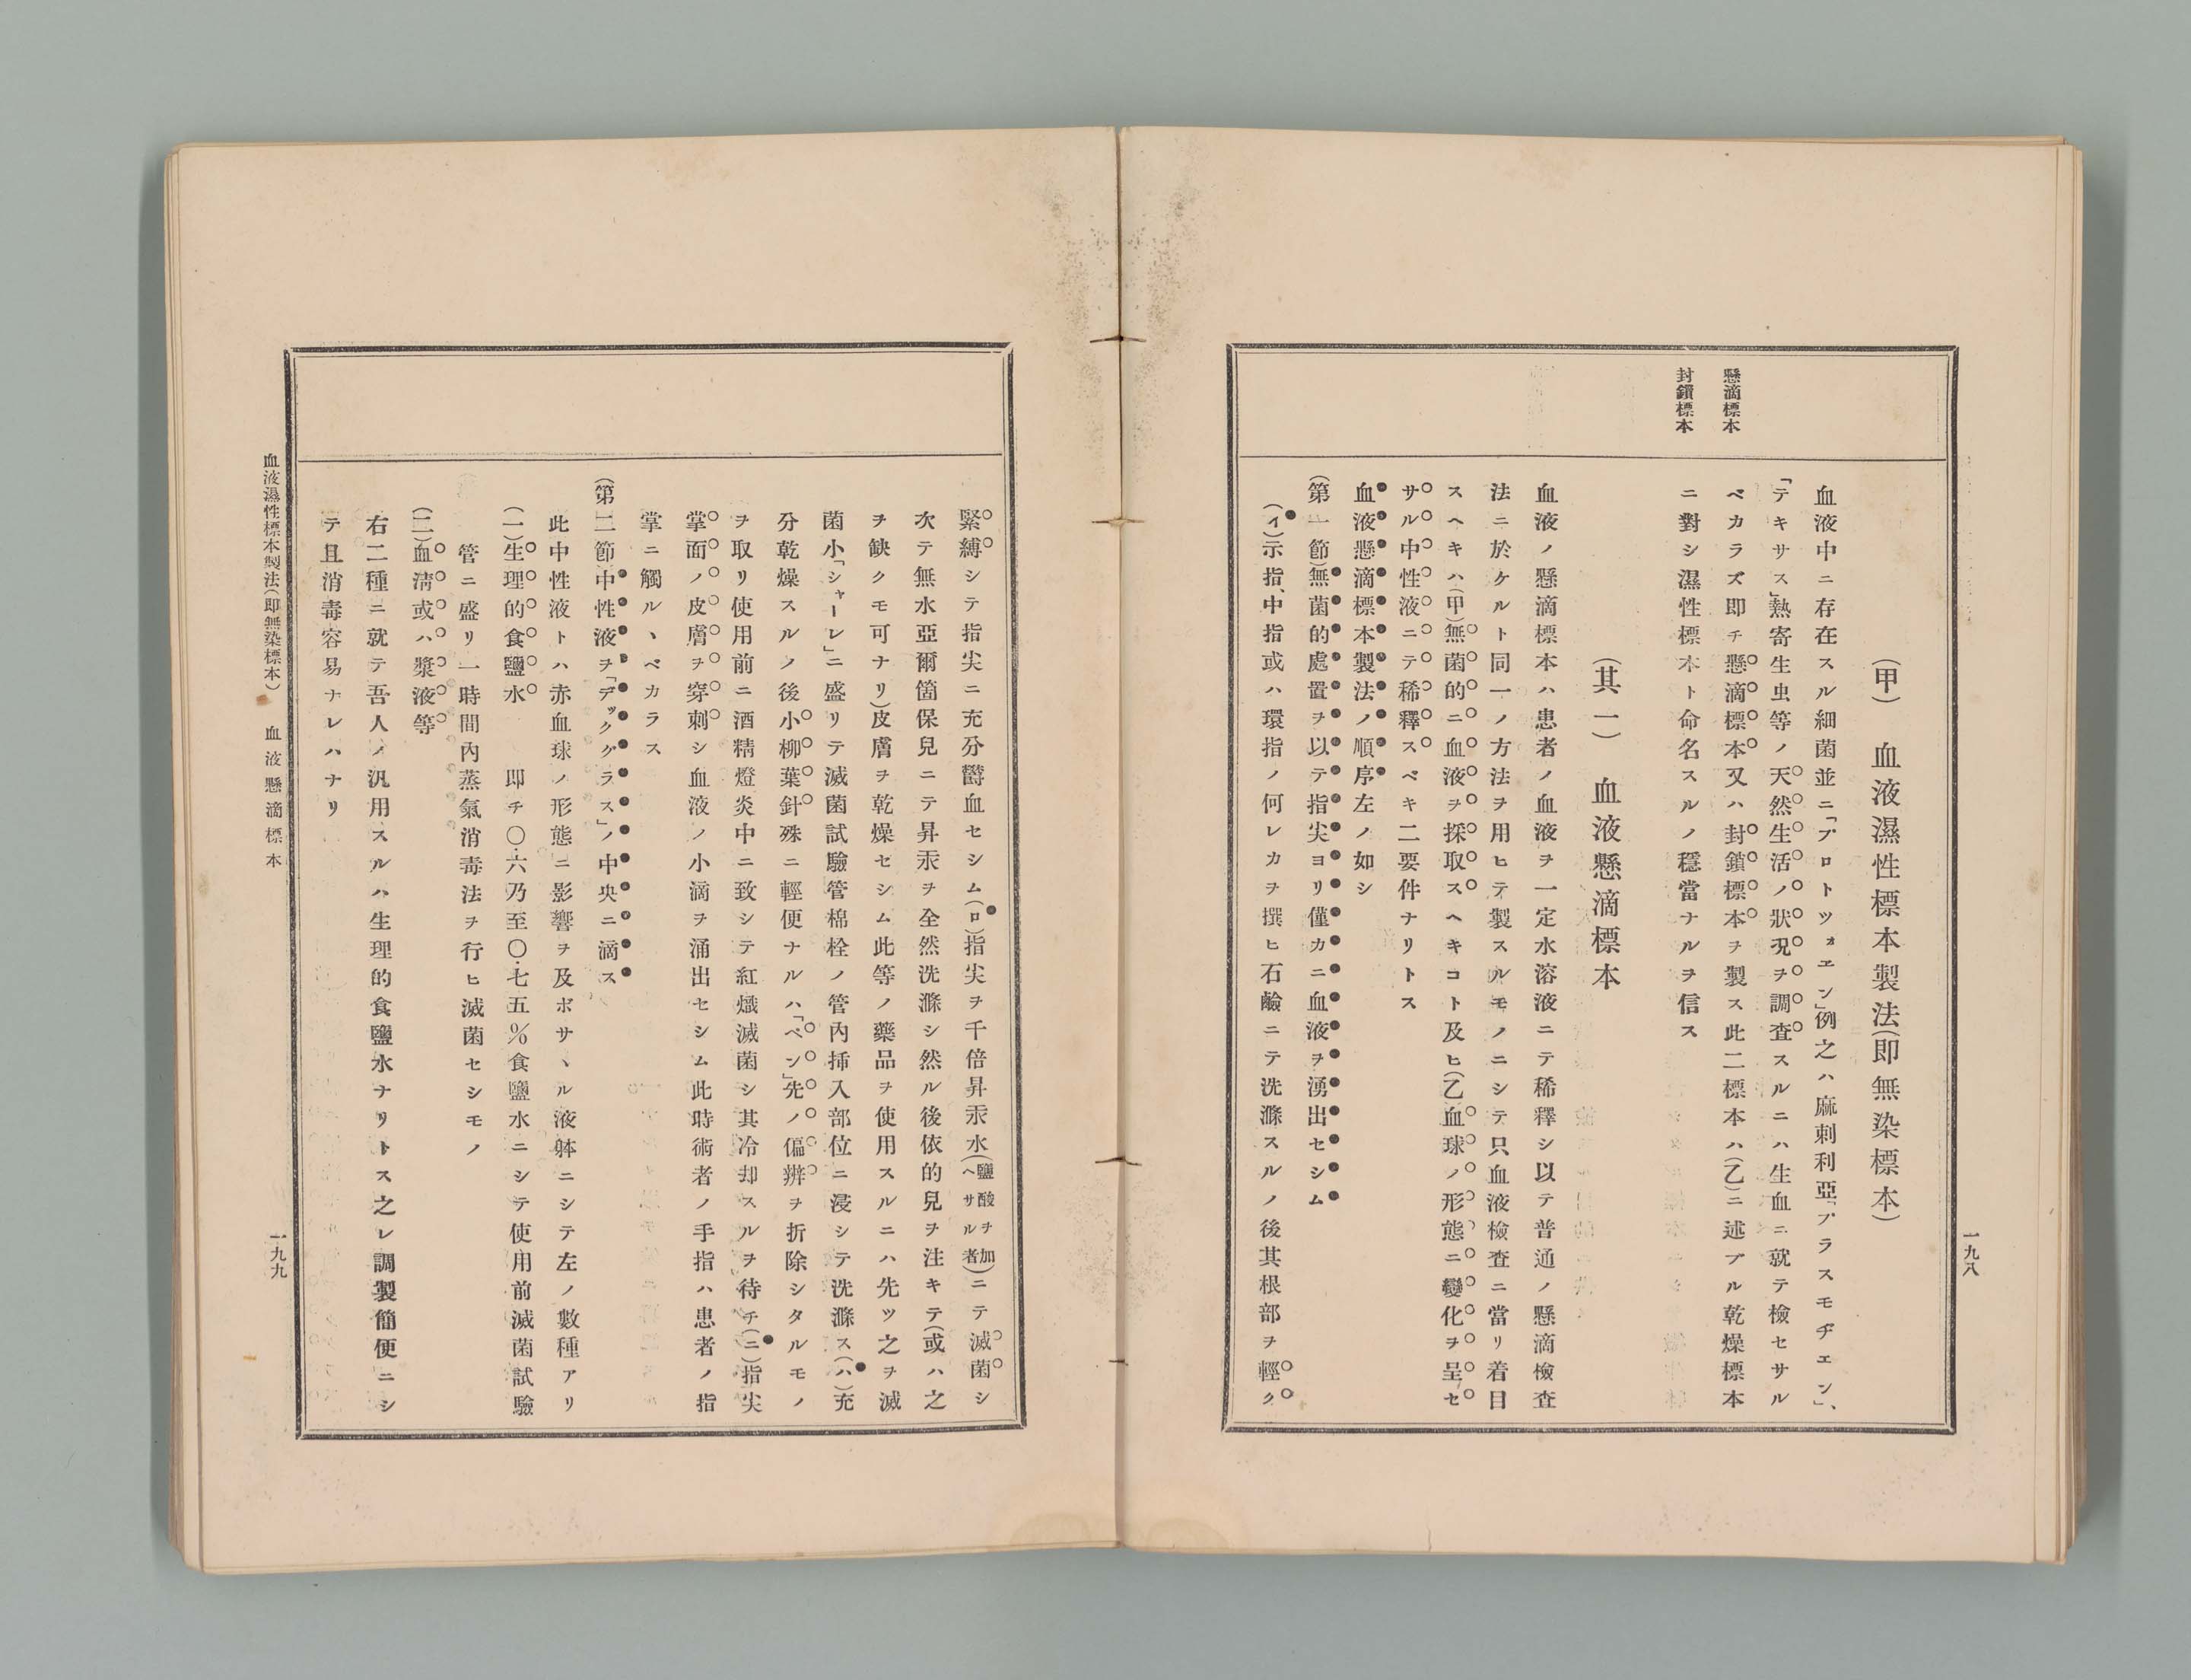 懸滴標本
封鎖標本
(甲)　血液濕性標本製法(卽無染標本)
血液中ニ存在スル細菌並ニ「プロトツォエン」例之ハ麻刺利亞「プラスモヂエン」、
「テキサス」熱寄生虫等ノ天然生活ノ狀況ヲ調査スルニハ生血ニ就テ檢セサル
ベカラズ卽チ懸滴標本又ハ封鎖標本ヲ製ス此二標本ハ(乙)ニ述ブル乾燥標本
ニ對シ濕性標本ト命名スルノ穩當ナルヲ信ス
(其一)　血液懸滴標本
血液ノ懸滴標本ハ患者ノ血液ヲ一定水溶液ニテ稀釋シ以テ普通ノ懸滴檢査
法ニ於ケルト同一ノ方法ヲ用ヒテ製スルモノニシテ只血液檢査ニ當リ着目
スヘキハ(甲)無菌的ニ血液ヲ採取スヘキコト及ヒ(乙)血球ノ形態ニ變化ヲ呈セ
サル中性液ニテ稀釋スベキ二要件ナリトス
血液懸滴標本製法ノ順序左ノ如シ
(第一節)無菌的處置ヲ以テ指尖ヨリ僅カニ血液ヲ湧出セシム
(イ)示指、中指或ハ環指ノ何レカヲ撰ヒ石鹼ニテ洗滌スルノ後其根部ヲ輕ク
一九八
緊縛シテ指尖ニ充分欝血セシム(ロ)指尖ヲ千倍昇汞水(鹽酸ヲ加ヘサル者)ニテ滅菌シ
次テ無水亞爾箇保兒ニテ昇汞ヲ全然洗滌シ然ル後依的兒ヲ注キテ(或ハ之
ヲ缺クモ可ナリ)皮膚ヲ乾燥セシム此等ノ藥品ヲ使用スルニハ先ツ之ヲ滅
菌小「シャーレ」ニ盛リテ滅菌試驗管棉栓ノ管內挿入部位ニ浸シテ洗滌ス(ハ)充
分乾燥スルノ後小柳葉針殊ニ輕便ナルハ「ペン」先ノ偏辨ヲ折除シタルモノ
ヲ取リ使用前ニ酒精燈炎中ニ致シテ紅熾滅菌シ其冷却スルヲ待チ(ニ)指尖
掌面ノ皮膚ヲ穿刺シ血液ノ小滴ヲ涌出セシム此時術者ノ手指ハ患者ノ指
掌ニ觸ルヽベカラス
(第二節)中性液ヲ「デックグラス」ノ中央ニ滴ス
此中性液トハ赤血球ノ形態ニ影響ヲ及ボサヽル液躰ニシテ左ノ數種アリ
(一)生理的食鹽水　卽チ〇.六乃至〇.七五%食鹽水ニシテ使用前滅菌試驗
管ニ盛リ一時間內蒸氣消毒法ヲ行ヒ滅菌セシモノ
(二)血淸或ハ漿液等
右二種ニ就テ吾人ノ汎用スルハ生理的食鹽水ナリトス之レ調製簡便ニシ
テ且消毒容易ナレハナリ
血液濕性標本製法(卽無染標本)　血液懸滴標本
一九九